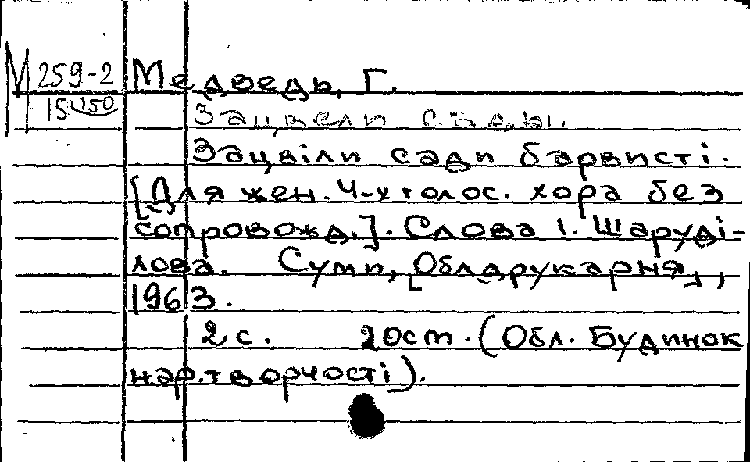 М 259-2 Медведь, Г.
15450
Зацвели сады.
Зацвіли сади барвисті.
[Для жен. 4-х голос. хора без
сопровожд.]. Слова І. Шаруді-
лова. Суми, [Облдрукарня],
1963.
2 с. 20 см. (Обл. Будинок
нар. творчості).